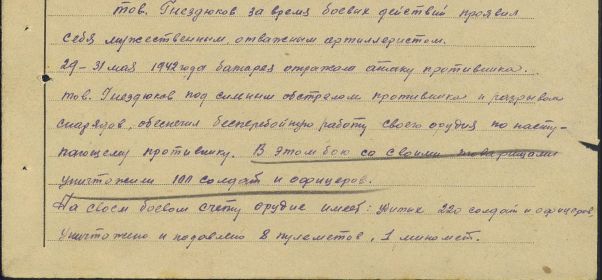 тов. Гнездюков за время боевых действий проявил
себя мужественным, отважным артиллеристом.
29-31 мая 1942 года батарея отражала атаку противника.
тов. Гнездюков под сильным обстрелом противника и разрывом
снарядов, обеспечил бесперебойную работу своего орудия по насту-
пающему противнику. В этом бою со своими товарищами
уничтожили 100 солдат и офицеров.
На своем боевом счету орудие имеет: убитых 220 солдат и офицеров,
уничтожено и подавлено 8 пулеметов, 1 миномет.